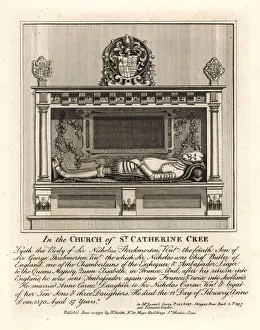 In the CHURCH of St. CATHERINE CREE
Lyeth the Body of Sir Nicholas Throkmorton Knt. the fourth Son of
Sir George Throkmorton Knt. the which Sir Nicholas was Chief Butler of
England, one of the Chamberlains of the Exchequer & Ambassador Leiger
to the Queens Majesty Queen Elizabeth in France. And after his return into
England he was sent Ambassador again into France & twice into Scotland.
He married Anne Carew Daughter to Sir Nicholas Carew Knt. & begat
of her Ten Sons & three Daughters. He died the 12 Day of February Anno
Dom. 1570. Aged 57 Years.